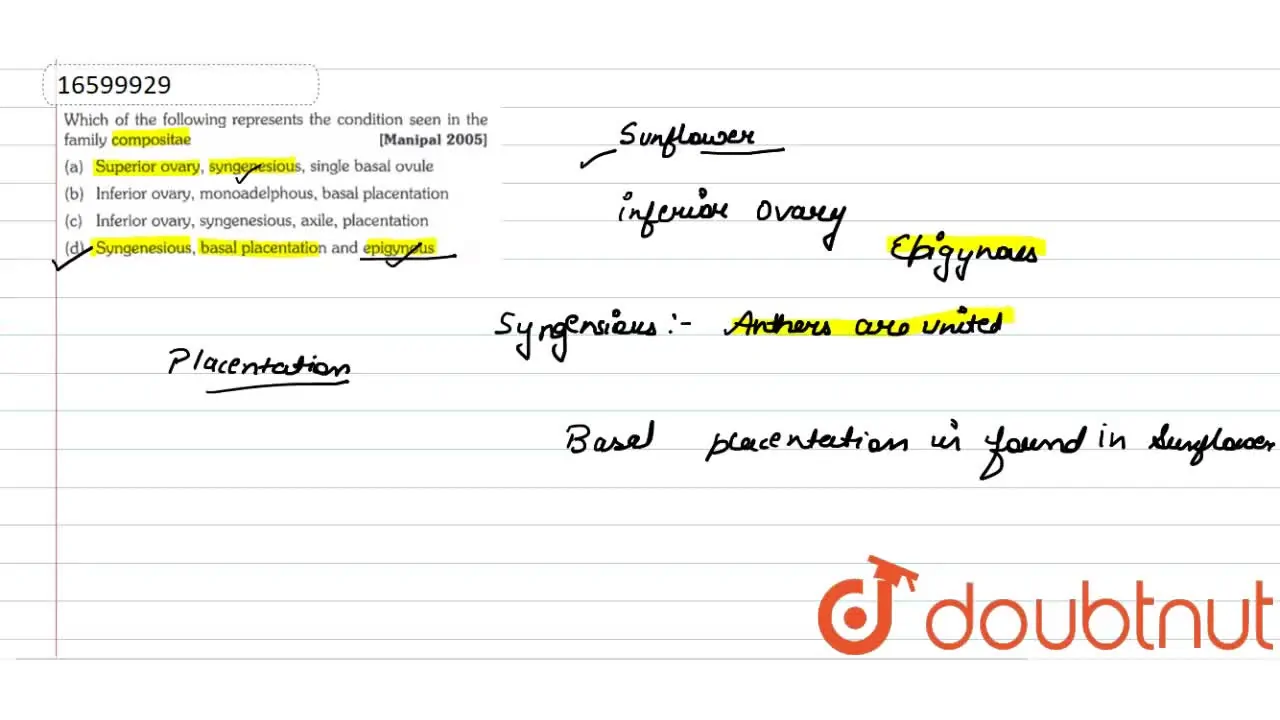 16599929
Which of the following represents the condition seen in the
family compositae [Manipal 2005]
(a) Superior ovary, syngenesious, single basal ovule
(b) Inferior ovary, monoadelphous, basal placentation
(c) Inferior ovary, syngenesious, axile, placentation
(d) Syngenesious, basal placentation and epigynous
Sunflower
inferior ovary
Epigynous
Syngensious :- Anthers are united
Placentation
Basal placentation is found in Sunflower
doubtnut